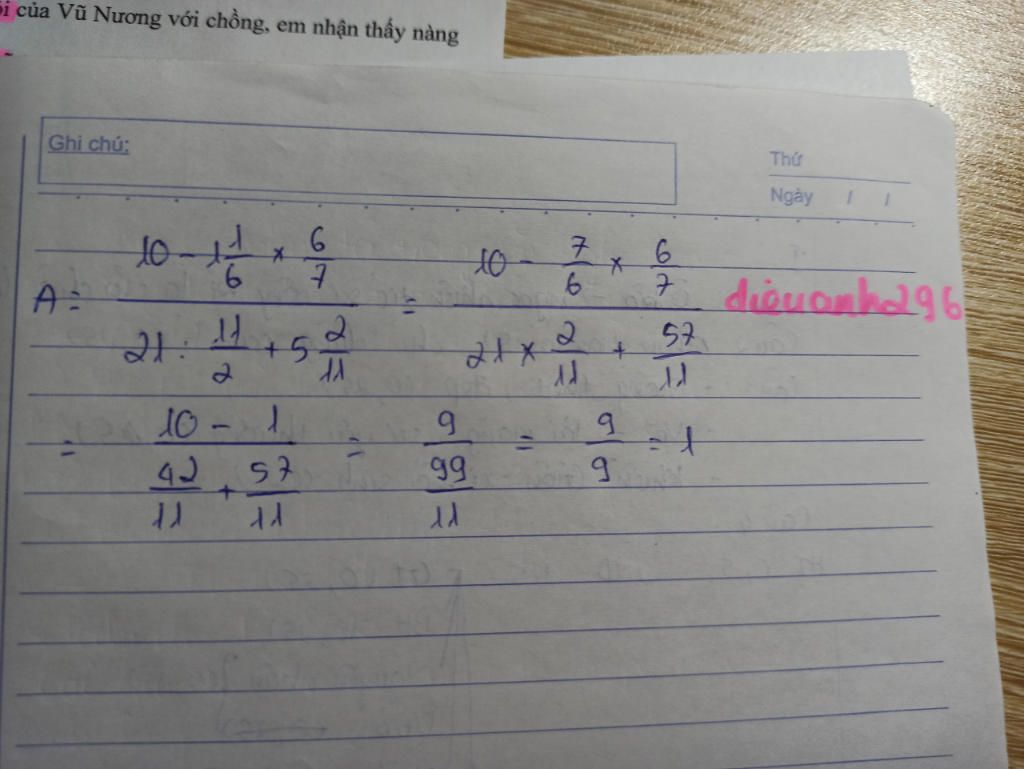 ời của Vũ Nương với chồng, em nhận thấy nàng
Ghi chú:
Thứ
Ngày / /
A = (10 - 1 1/6 × 6/7) / (21 : 11/2 + 5 2/11) = (10 - 7/6 × 6/7) / (21 × 2/11 + 57/11)
diêuanh296
= (10 - 1) / (42/11 + 57/11) = 9 / (99/11) = 9/9 = 1